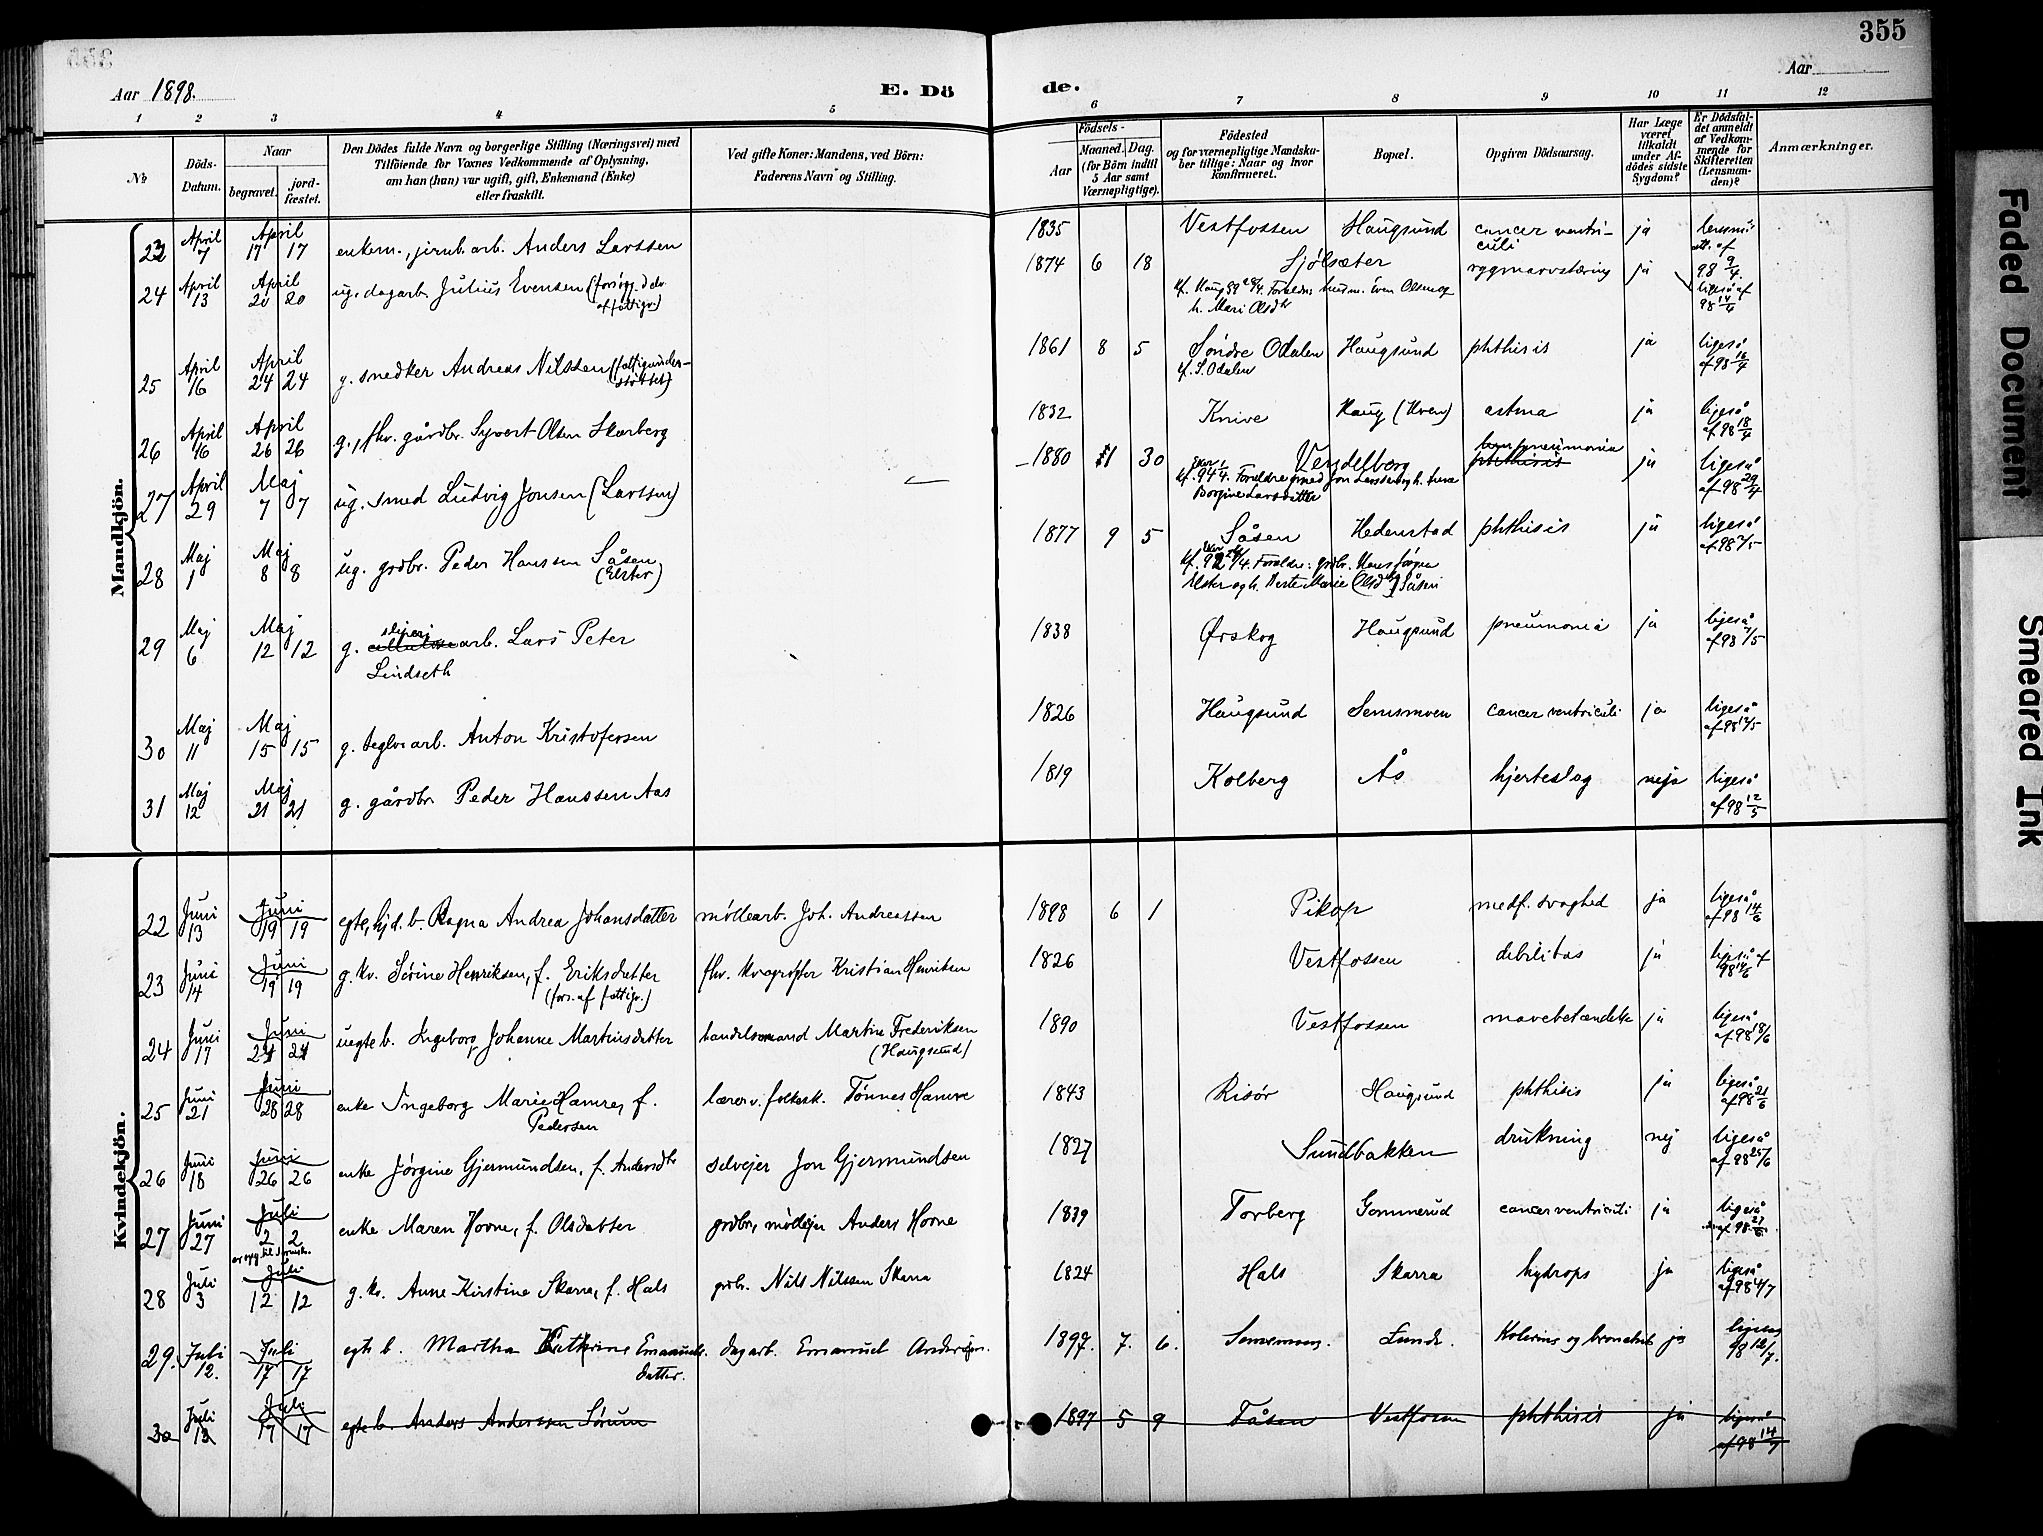 355
Aar 1898.
E. Döde.
Aar
1 2 3 4 5 6 7 8 9 10 11 12
No
Döds-Datum.
Naar
begravet.
jord-fæstet.
Den Dödes fulde Navn og borgerlige Stilling (Næringsvei) med
Tilföiende for Voxnes Vedkommende af Oplysning,
om han (hun) var ugift, gift, Enkemand (Enke)
eller fraskilt.
Ved gifte Koner: Mandens, ved Börn:
Faderens Navn og Stilling.
Födsels-
Aar
Maaned. Dag.
(for Börn indtil
5 Aar samt
Værnepligtige).
Födested
og for værnepligtige Mandska-
ber tillige: Naar og hvor
konfirmeret.
Bopæl.
Opgiven Dödsaarsag.
Har Læge
været
tilkaldt
under Af-
dödes sidste
Sygdom?
Er Dödsfal-
det anmeldt
af Vedkom-
mende for
Skifteretten
(Lensman-
den)?
Anmærkninger.
Mandkjön.
23 April 7 April 17 17 enkem., jernb.arb. Anders Larssen 1835 Vestfossen Haugsund cancer ventri-
culi ja lensm. att. af 98 9/4.
24 April 13 April 20 20 ug. dagarb. Julius Evensen (forsørg. del. af fattigv.) 1874 6 18 Sjölsæter rygmarvstæring ja ligeså af 98 14/4
h. Mari Olsdtr
25 April 16 April 24 24 g. snedker Andreas Nilssen (fattigunder-
støttet) 1861 8 5 Søndre Odalen Haugsund phthisis ja ligeså af 98 16/4
kf. S. Odalen
26 April 16 April 26 26 g., fhv. gårdbr. Syvert Olsen Skarberg 1832 Knive Haug (Hven) astma ja ligeså af 98 18/4
27 April 29 Maj 7 7 ug. smed Ludvig Jonsen (Larssen) 1880 1 30 Vendelborg pneumonia phthisis ja ligeså af 98 29/4
Borgine Larsdatter
28 Maj 1 Maj 8 8 ug. grdbr. Peder Hanssen Såsen
(Elster) 1877 9 5 Såsen Hedenstad phthisis ja ligeså af 98 2/5
29 Maj 6 Maj 12 12 g. sliperi cellulose arb. Lars Peter
Lindseth 1838 Ørskog Haugsund pneumonia ja ligeså af 98 7/5
30 Maj 11 Maj 15 15 g. teglv.arb. Anton Kristofersen 1826 Haugsund Semsmoen cancer ventriculi ja ligeså af 98 12/5
31 Maj 12 Maj 21 21 g. gårdbr. Peder Hanssen Aas 1819 Kolberg Ås hjerteslag nej ligeså af 98 12/5
Kvindekjön.
22 Juni 13 Juni 19 19 egte, hjd. b. Ragna Andrea Johansdatter møllearb. Joh. Andreassen 1898 6 1 Pikop medf. svaghed ja ligeså af 98 14/6
23 Juni 14 Juni 19 19 g. kv. Sørine Henriksen, f. Eriksdatter
(fors. af fattigv.) fhv. Kristian Henriksen 1826 Vestfossen debilitas ja ligeså af 98 14/6
24 Juni 17 Juni 24 24 uegte b. Ingeborg Johanne Martinsdatter handelsmand Martin Frederiksen
(Haugsund) 1890 Vestfossen mavebetændelse ja ligeså af 98 18/6
25 Juni 21 Juni 28 28 enke Ingeborg Marie Hamre, f.
Pedersen lærer v. folkesk. Tönnes Hamre 1843 Risör Haugsund phthisis ja ligeså af 98 21/6
26 Juni 18 Juni 26 26 enke Jørgine Gjermundsen, f. Andersdtr selvejer Jon Gjermundsen 1827 Sundbakken drukning nej ligeså af 98 25/6
27 Juni 27 Juli 2 2 enke Maren Horne, f. Olsdatter grdbr, mølleejer Anders Horne 1839 Torberg Gommerud cancer ventriculi ja ligeså af 98 27/6
28 Juli 3 Juli 12 12 g. kv. Anne Kirstine Skarra, f. Hals grdbr. Nils Nilssen Skarra 1824 Hals Skarra hydrops ja ligeså af 98 4/7
29. Juli 12. Juli 17 17 egte b. Martha Kathrine Emanuels-
datter. dagarb. Emanuel Andersen. 1897. 7. 6. Semsmoen. Lunde. Kolerine og bronchit ja ligeså 98 12/7.
30 Juli 13 Juli 17 17 egte b. Anders Anderssen Sørum 1897 5 9 Tåsen Vestfossen phthisis ja ligeså af 98 14/7
Faded Document
Smeared Ink